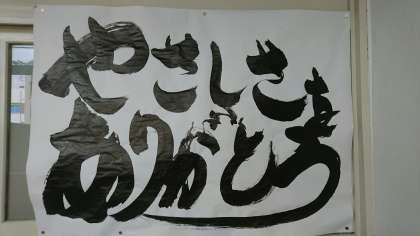 やさしさ
ありがとう